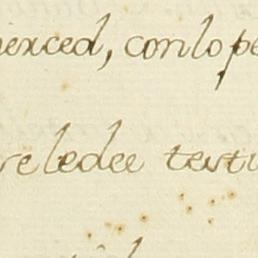 merced, conlope
re ledee testi